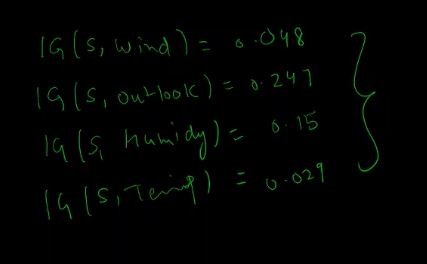 IG(S, wind) = 0.048
IG(S, Outlook) = 0.247
IG(S, Humidy) = 0.15
IG(S, Temp) = 0.029